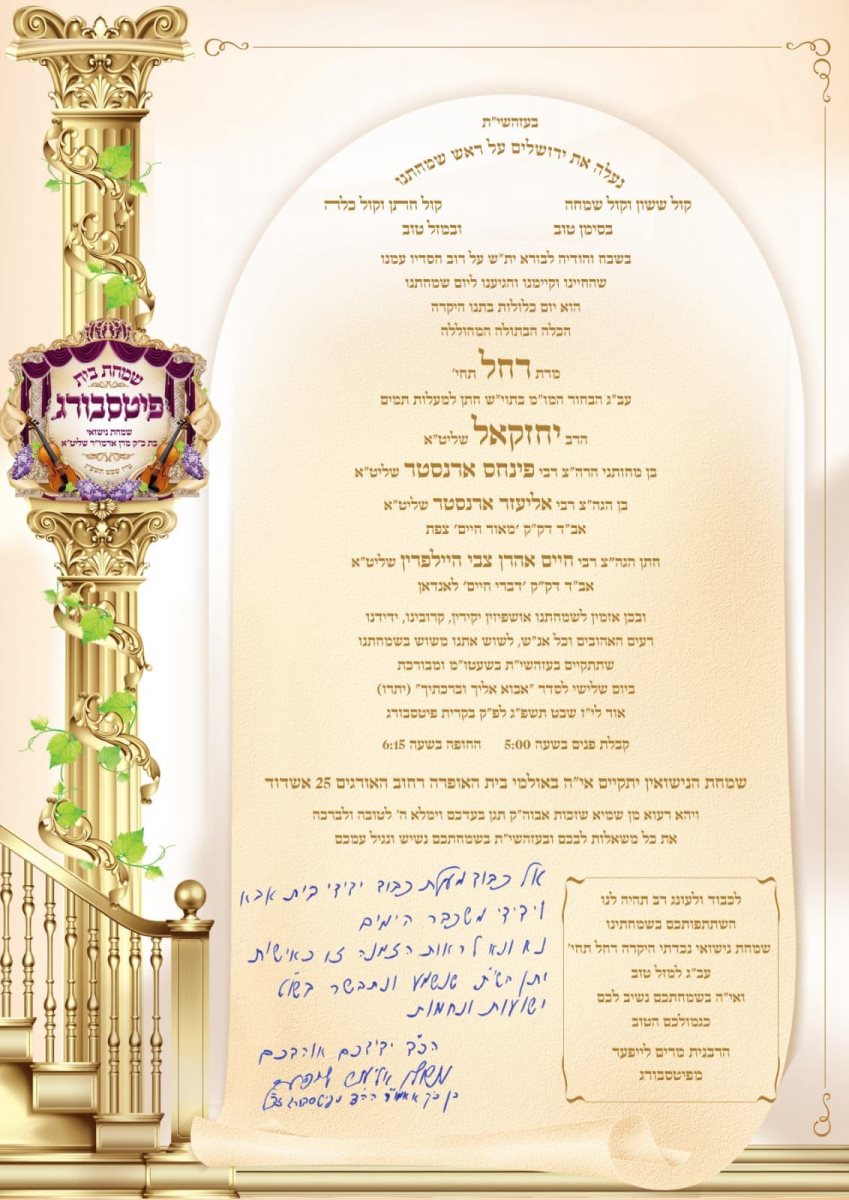 בעזהשי"ת
נעלה את ירושלים על ראש שמחתנו
קול ששון וקול שמחה קול חתן וקול כלה
בסימן טוב ובמזל טוב
בשבח והודיה לבורא ית"ש על רוב חסדיו עמנו
שהחיינו וקיימנו והגיענו ליום שמחתנו
הוא יום כלולות בתנו היקרה
הכלה הבתולה המהוללה
מרת רחל תחי'
עב"ג הבחור המו"מ בתוי"ש חתן למעלות תמים
הרב יחזקאל שליט"א
בן מחותני הרה"צ רבי פינחס ארנסטר שליט"א
בן הגה"צ רבי אליעזר ארנסטר שליט"א
אב"ד דק"ק 'מאור חיים' צפת
חתן הגה"צ רבי חיים אהרן צבי היילפרין שליט"א
אב"ד דק"ק 'דברי חיים' לאנדאן
ובכן אזמין לשמחתנו אושפיזין יקירין, קרובינו, ידידנו
רעים האהובים וכל אנ"ש, לשוש אתנו משוש בשמחתנו
שתתקיים בעזהשי"ת בשעטו"מ ומבורכת
ביום שלישי לסדר "אבוא אליך וברכתיך" (יתרו)
אור לי"ז שבט תשפ"ג לפ"ק בקרית פיטסבורג
קבלת פנים בשעה 5:00 החופה בשעה 6:15
שמחת הנישואין יתקיים אי"ה באולמי בית האופרה רחוב האורגים 25 אשדוד
ויהא רעוא מן שמיא שזכות אבוה"ק תגן בעדכם וימלא ה' לטובה ולברכה
את כל משאלות לבכם ובעזהשי"ת בשמחתכם נשיש ונגיל עמכם
אל כבוד מעלת כבוד ידידי בית אבא
וידידי משכבר הימים
נא ונא לראות הזמנה זו כאישית
יתן הש"ת שנשמע ונתבשר בשו"ט
ישועות ונחמות
הכ"ד ידידכם אוהבכם
לכבוד ולעונג רב תהיה לנו
השתתפותכם בשמחתינו
שמחת נישואי נכדתי היקרה רחל תחי'
עב"ג למזל טוב
ואי"ה בשמחתכם נשיב לכם
כגמולכם הטוב
הרבנית מרים לייפער
מפיטסבורג
שמחת בית
פיטסבורג
שמחת נישואי
בת כ"ק מרן אדמו"ר שליט"א
ט"ז שבט תשפ"ג